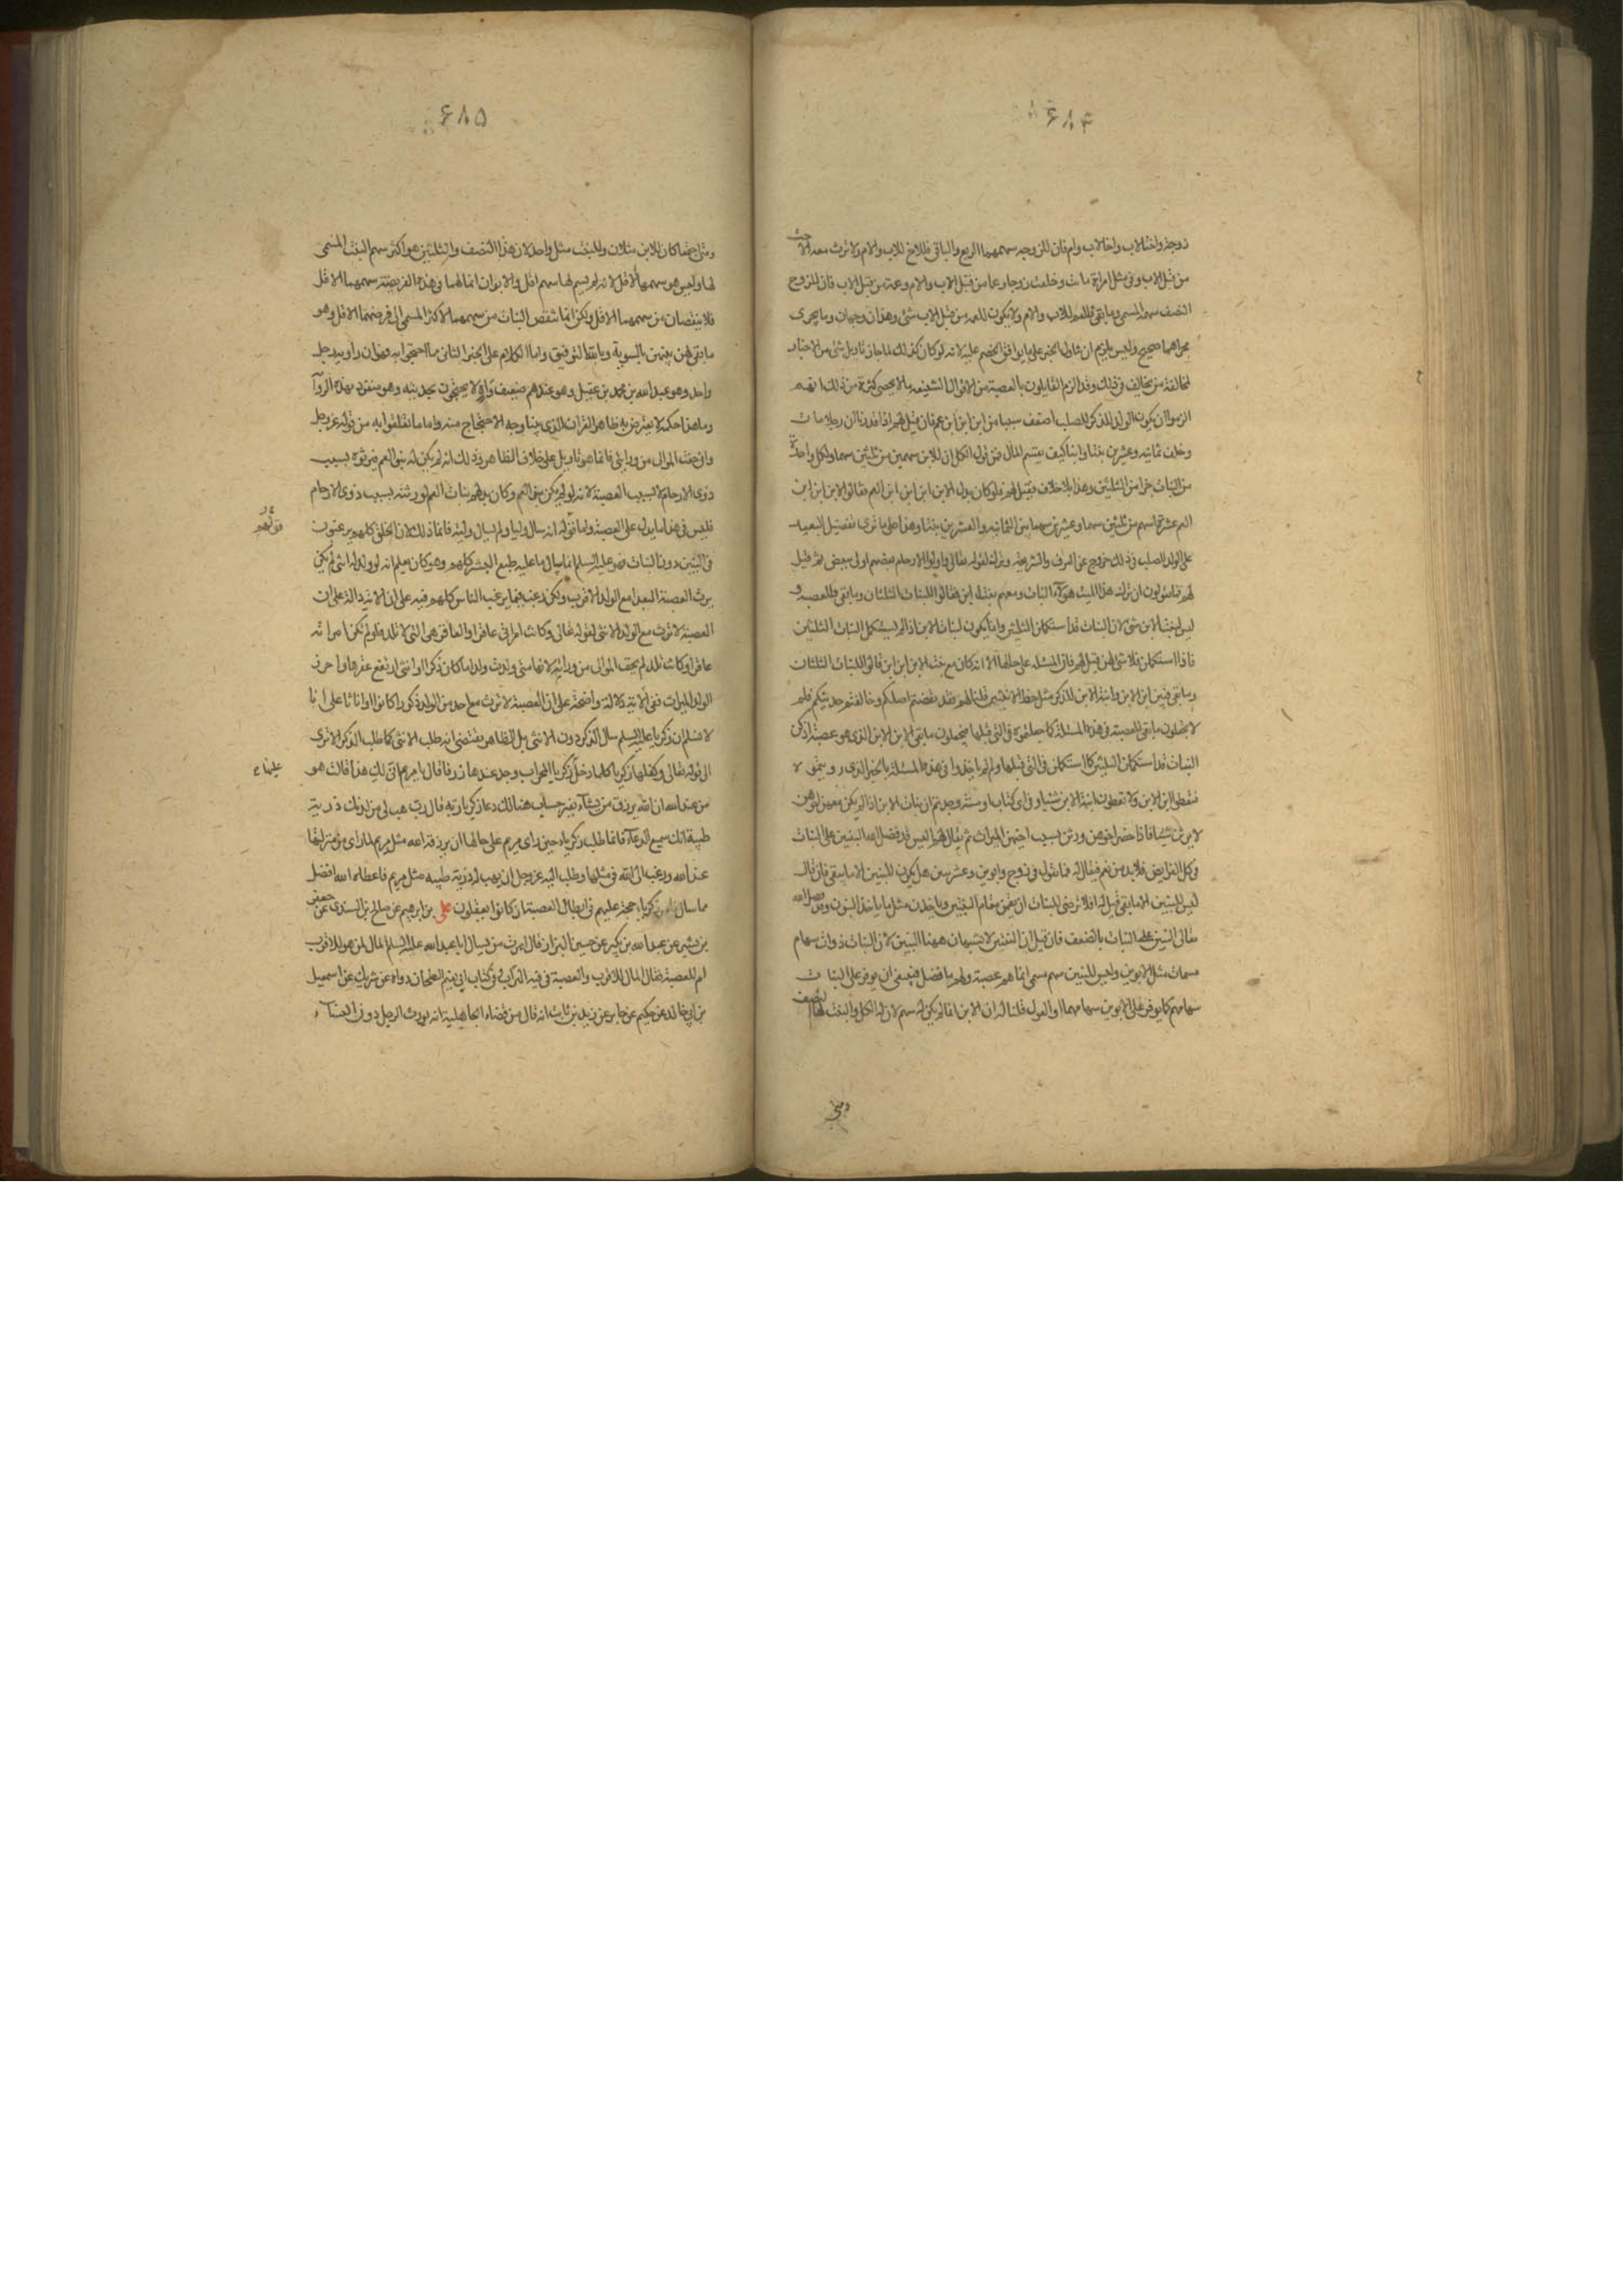 ۶۸۴
زوجة واختا لاب واخا لاب وام فان للزوجه سهمهما الربع والباقى فللاخ للاب والام ولا ترث معه الاخت
من قبل الاب وفى مثل امراة ماتت وخلفت زوجا وعما من قبل الاب والام وعمة من قبل الاب فان للزوج
النصف سهمه المسمى وما بقى فللعم للاب والام ولا يكون للعمه من قبل الاب شئ وهذان وجهان وما يجرى
مجراهما صحيح وليس يلزم ان نتاول الخبر على ما يوافق الخصم عليه لانه لو كان كذلك لما جاز تاويل شئ من الاخبار
لمخالفة من يخالف فى ذلك وقد الزم القايلون بالعصبة من الاقوال الشنيعه ما لا يحصى كثرة من ذلك انهم
الزموا ان يكون الولد الذكر للصلب اضعف سببا من ابن ابن ابن عم فان قيل لهم اذا قدرنا ان رجلا مات
وخلف ثمانيه وعشرين بنتا وابنا كيف يقسم المال فمن قول الكل ان للابن سهمين من ثلثين سهما ولكل واحدة
من البنات جزا من الثلثين وهذا بلا خلاف فقيل لهم فلو كان بدل الابن ابن ابن ابن العم فقالوا لابن ابن ابن
العم عشرة اسهم من ثلثين سهما وعشرين سهما بين الثمانيه والعشرين بنتا وهذا على ما ترى تفضيل البعيد
على الولد للصلب وفى ذلك خروج عن العرف والشريعه وترك لقوله تعالى واولوا الارحام بعضهم اولى ببعض ثم قيل
لهم فما تقولون ان ترك هذا الميت هؤلاء البنات ومعهم بنت ابن فقالوا للبنات الثلثان وما بقى فللعصبه و
ليس لبنت الابن شئ لان البنات قد استكملن الثلثين وانما يكون لبنات الابن اذا لم يستكمل البنات الثلثين
فاذا استكملن فلا شئ لهن قيل لهم فان المسئله على حالها الا انه كان مع بنت الابن ابن ابن قالوا للبنات الثلثان
وما بقى فبين ابن الابن وابنة الابن للذكر مثل حظ الانثيين قلنا لهم فقد نقضتم اصلكم وخالفتم حديثكم فلم
لا تجعلون ما بقى للعصبة فى هذه المسئلة كما جعلتموه فى التى قبلها فتجعلون ما بقى لابن الابن الذى هو عصبة اذ كن
البنات قد استكملن الثلثين كما استكملن فى التى قبلها ولم لم تاخذوا فى هذه المسئلة بالخبر الذى رويتموه لا
فتعطوا ابن الابن ولا تعطون ابنة الابن شيئا وفى اى كتاب او سنة وجدتم ان بنات الابن اذا لم يكن معهن اخوهن
لا يرثن شيئا فاذا حضر اخوهن ورثن بسبب اخيهن الميراث ثم يقال لهم اليس قد فضل الله البنين على البنات
فى كل الفرايض فلا بد من نعم فيقال لهم فما تقول فى زوج وابوين وعشر بنين هل يكون للبنين الا ما يبقى فان قال
ليس للبنين الا ما بقى قيل له افلا ترضى للبنات ان يقمن مقام البنين وياخذن مثل ما ياخذ البنون وقد فضل الله
تعالى البنين على البنات بالضعف فان قيل ان البنتين لا يشبهان ههنا البنين لان البنات ذوات سهام
مسمات مثل الابوين وليس للبنين سهم مسمى انما هم عصبة ولهم ما فضل فينبغى ان يوفر على البنات
سهامهم كما يوفر على الابوين سهامهما او العول قلنا له ان الابن انما لم يكن له سهم لان له الكل والبنت لها النصف
ومتى
۶۸۵
ومتى اجتمعا كان للابن مثلان وللبنت مثل واحد لان هذا النصف والثلثين هو اكثر سهم البنت المسمى
لها وليس هو سهمها الاقل لانه لم يسم لها سهم اقل والابوان انما لهما فى هذه الفريضة سهمهما الاقل
فلا ينقصان من سهمهما الاقل ولكن انما تنقص البنات من سهمهما الاكثر المسمى الى فرضهما الاقل وهو
ما بقى لهن بينهن بالسوية وبالله التوفيق واما الكلام على الخبر الثانى مما احتجوا به فهو ان راويه رجل
واحد وهو عبد الله بن محمد بن عقيل وهو عندهم ضعيف واه لا يحتجون بحديثه وهو منفرد بهذه الروآ
وما هذا حكمه لا يعترض به ظاهر القران الذى بينا وجه الاحتجاج منه واما ما تعلقوا به من قوله عز وجل
وانى خفت الموالى من ورائى فانما هو تاويل على خلاف الظاهر وذلك انه لم يكن له بنو العم فيرثوه بسبب
ذوى الارحام لا بسبب العصبة لانه لو لم يكن بنى العم وكان بدلهم بنات العم لورثنه بسبب ذوى الارحام
فليس فى هذا ما يدل على العصبة واما قولهم انه سال وليا ولم يسال ولية فانما ذلك لان الخلق كلهم يرغبون
قولهم
فى البنين دون البنات فهو عليه السلم انما سال ما عليه طبع البشر كلهم وهو كان يعلم انه لو ولد له انثى لم يكن
يرث العصبة البعدا مع الولد الاقرب ولكن رغب فيما يرغب الناس كلهم فيه على ان الآية دالة على ان
العصبة لا ترث مع الولد الانثى لقوله تعالى وكانت امراتى عاقرا والعاقر هى التى لا تلد فلو لم تكن امراته
عاقرا وكانت تلد لم يخف الموالى من ورائه لانها متى ولدت ولدا ما كان ذكرا او انثى ارتفع عقرها واحرز
الولد الميراث ففى الآية دلالة واضحة على ان العصبة لا ترث مع احد من الولد ذكورا كانوا او اناثا على انا
لا نسلم ان زكريا عليه السلم سال الذكر دون الانثى بل الظاهر يقتضى انه طلب الانثى كما طلب الذكر الا ترى
الى قوله تعالى وكفلها زكريا كلما دخل زكريا المحراب وجد عندها رزقا قال يا مريم انى لك هذا قالت هو
عليها
من عند الله ان الله يرزق من يشآء بغير حساب هنالك دعا زكريا ربه قال رب هب لى من لدنك ذرية
طيبة انك سميع الدعآء فانما طلب زكريا حين راى مريم على حالها ان يرزقه الله مثل مريم لما راى من منزلتها
عند الله ورغب الى الله فى مثلها وطلب اليه عز وجل ان يهب له ذرية طيبه مثل مريم فاعطاه الله افضل
مما سال زكريا حجة عليهم فى ابطال العصبة ان كانوا يعقلون على بن ابرهيم عن صالح بن السندى عن جعفر
بن بشير عن عبد الله بن بكير عن حسين البزاز قال امرت من يسال ابا عبد الله عليه السلم المال لمن هو للاقرب
ام للعصبة فقال المال للاقرب والعصبة فى فيه التراب وفى كتاب ابى نعيم الطحان رواه عن شريك عن اسمعيل
بن ابى خالد عن حكيم عن جابر عن زيد بن ثابت انه قال من قضاء الجاهلية ان يورث الرجل دون النسآء